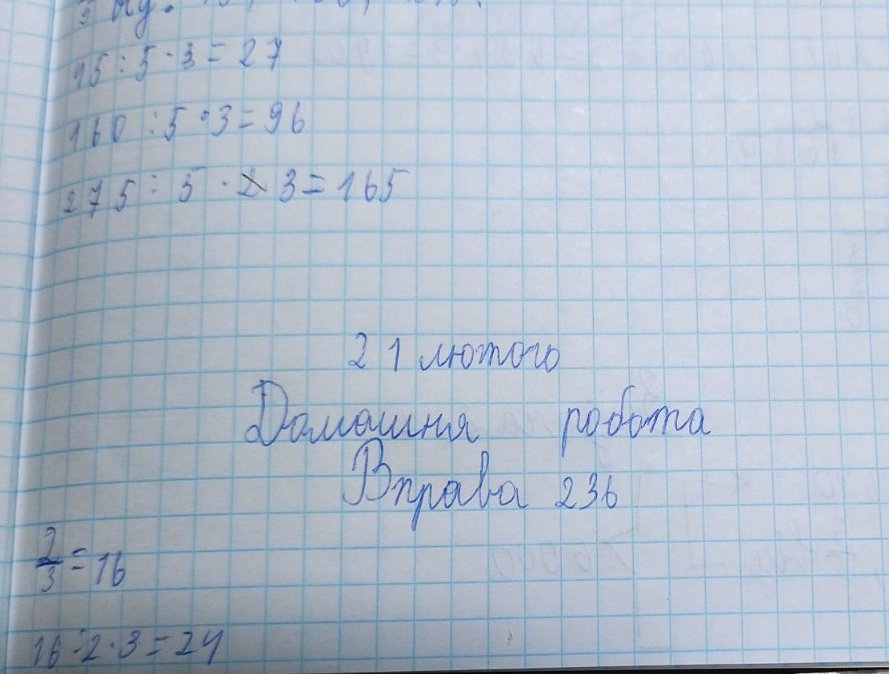 45 : 5 · 3 = 27
160 : 5 · 3 = 96
275 : 5 · 3 = 165
21 лютого
Домашня робота
Вправа 236
2/3 = 16
16 : 2 · 3 = 24